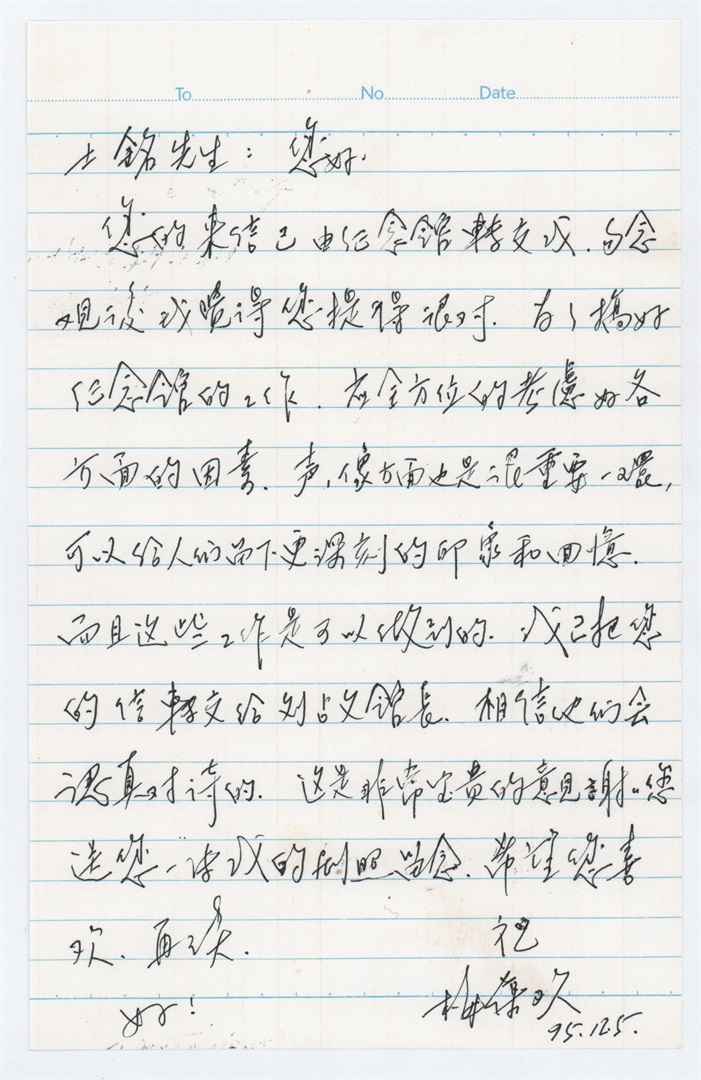 To No Date
士銘先生：您好.
您的来信已由纪念館轉交我.
观後我覺得您提得很对. 为了搞好
纪念館的工作. 应全方位的考慮好各
方面的因素. 声,像方面也是很重要一环,
可以给人们留下更深刻的印象和回憶.
而且这些工作是可以做到的. 我已把您
的信轉交给刘占文館長. 相信他们会
認真对待的. 这是非常宝贵的意見謝々您
送您一张我的剧照留念. 希望您喜
欢. 再谈. 祝
好! 梅葆玖
95.12.5.